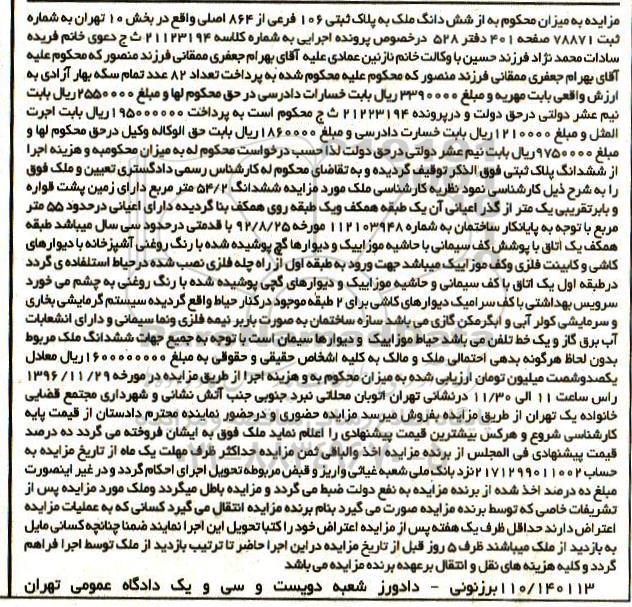 مزایده به میزان محکوم به از شش دانگ ملک به پلاک ثبتی ۱۰۶ فرعی از ۸۶۴ اصلی واقع در بخش ۱۰ تهران به شماره
ثبت ۷۸۸۷۱ صفحه ۴۰۱ دفتر ۵۲۸ درخصوص پرونده اجرایی به شماره کلاسه ۲۱۱۲۳۱۹۴ ث ج دعوی خانم فریده
سادات محمد نژاد فرزند حسین با وکالت خانم نازنین عمادی علیه آقای بهرام جعفری ممقانی فرزند منصور که محکوم علیه
آقای بهرام جعفری ممقانی فرزند منصور که محکوم علیه محکوم شده به پرداخت تعداد ۸۲ عدد تمام سکه بهار آزادی به
ارزش واقعی بابت مهریه و مبلغ ۳۳۹۰۰۰۰ ریال بابت خسارات دادرسی در حق محکوم لها و مبلغ ۲۵۵۰۰۰۰۰ ریال بابت
نیم عشر دولتی درحق دولت و درپرونده ۲۱۲۲۳۱۹۴ ث ج محکوم است به پرداخت ۱۹۵۰۰۰۰۰۰ ریال بابت اجرت
المثل و مبلغ ۱۲۱۰۰۰۰ ریال بابت خسارت دادرسی و مبلغ ۱۸۶۰۰۰۰ ریال بابت حق الوکاله وکیل درحق محکوم لها و
مبلغ ۹۷۵۰۰۰۰ ریال بابت نیم عشر دولتی درحق دولت لذا حسب درخواست محکوم له به میزان محکومبه و هزینه اجرا
از ششدانگ پلاک ثبتی فوق الذکر توقیف گردیده و به تقاضای محکوم له کارشناس رسمی دادگستری تعیین و ملک فوق
را به شرح ذیل کارشناسی نمود نظریه کارشناسی ملک مورد مزایده ششدانگ ۵۴/۲ متر مربع دارای زمین پشت قواره
و بابرتقریبی یک متر از گذر اعیانی آن یک طبقه همکف ویک طبقه روی همکف بنا گردیده دارای اعیانی درحدود ۵۵ متر
مربع با توجه به پایانکار ساختمان به شماره ۱۱۲۱۰۳۹۴۸ مورخه ۹۲/۸/۲۵ با قدمتی درحدود سی سال میباشد طبقه
همکف یک اتاق با پوشش کف سیمانی با حاشیه موزاییک و دیوارها گچ پوشیده شده با رنگ روغنی آشپزخانه با دیوارهای
کاشی و کابینت فلزی وکف موزاییک میباشد جهت ورود به طبقه اول از راه چله فلزی نصب شده در حیاط استفاده ی گردد
درطبقه اول یک اتاق با کف سیمانی و حاشیه موزاییک و دیوارهای گچی پوشیده شده با رنگ روغنی به چشم می خورد
سرویس بهداشتی با کف سرامیک دیوارهای کاشی برای ۲ طبقه موجود درکنار حیاط واقع گردیده سیستم گرمایشی بخاری
و سرمایشی کولر آبی و آبگرمکن گازی می باشد سازه ساختمان به صورت باربر نیمه فلزی ونما سیمانی و دارای انشعابات
آب برق گاز و یک خط تلفن می باشد حیاط موزاییک و دیوارها سیمان است با توجه به جمیع جهات ششدانگ ملک مربوط
بدون لحاظ هرگونه بدهی احتمالی ملک و مالک به کلیه اشخاص حقیقی و حقوقی به مبلغ ۱۶۰۰۰۰۰۰۰۰ ریال معادل
یکصدوشصت میلیون تومان ارزیابی شده به میزان محکوم به و هزینه اجرا از طریق مزایده در مورخه ۱۳۹۶/۱۱/۲۹
راس ساعت ۱۱ الی ۱۱/۳۰ درنشانی تهران اتوبان محلاتی نبرد جنوبی جنب آتش نشانی و شهرداری مجتمع قضایی
خانواده یک تهران از طریق مزایده بفروش میرسد مزایده حضوری و درحضور نماینده محترم دادستان از قیمت پایه
کارشناسی شروع و هرکس بیشترین قیمت پیشنهادی را اعلام نماید ملک فوق به ایشان فروخته می گردد ده درصد
قیمت پیشنهادی فی المجلس از برنده مزایده اخذ والباقی ثمن مزایده حداکثر ظرف مهلت یک ماه از تاریخ مزایده به
حساب ۲۱۷۱۲۹۹۰۱۱۰۰۲ نزد بانک ملی شعبه غیاثی واریز و قبض مربوطه تحویل اجرای احکام گردد و در غیر اینصورت
مبلغ ده درصد اخذ شده از برنده مزایده به نفع دولت ضبط می گردد و مزایده باطل میگردد وملک مورد مزایده پس از
تشریفات خاصی که توسط برنده مزایده صورت می گیرد بنام برنده مزایده انتقال می گیرد کسانی که به عملیات مزایده
اعتراض دارند حداقل ظرف یک هفته پس از مزایده اعتراض خود را کتبا تحویل این اجرا نمایند ضمنا چنانچه کسانی مایل
به بازدید از ملک میباشند ظرف ۵ روز قبل از تاریخ مزایده دراین اجرا حاضر تا ترتیب بازدید از ملک توسط اجرا فراهم
گردد و کلیه هزینه های نقل و انتقال برعهده برنده مزایده می باشد
۱۱۰/۱۴۰۱۱۳ برزنونی - دادورز شعبه دویست و سی و یک دادگاه عمومی تهران